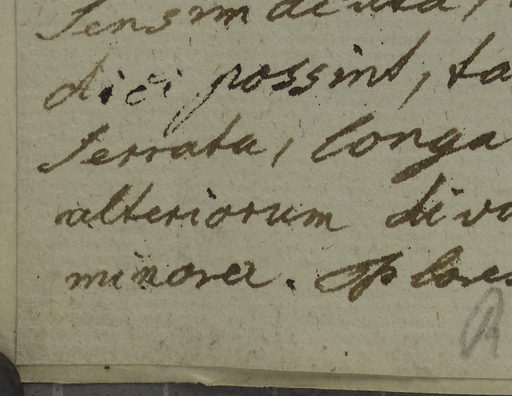 sensim acuta,
dici possint, ta
serrata, longa
alteriorum diva
minores. Flores
R